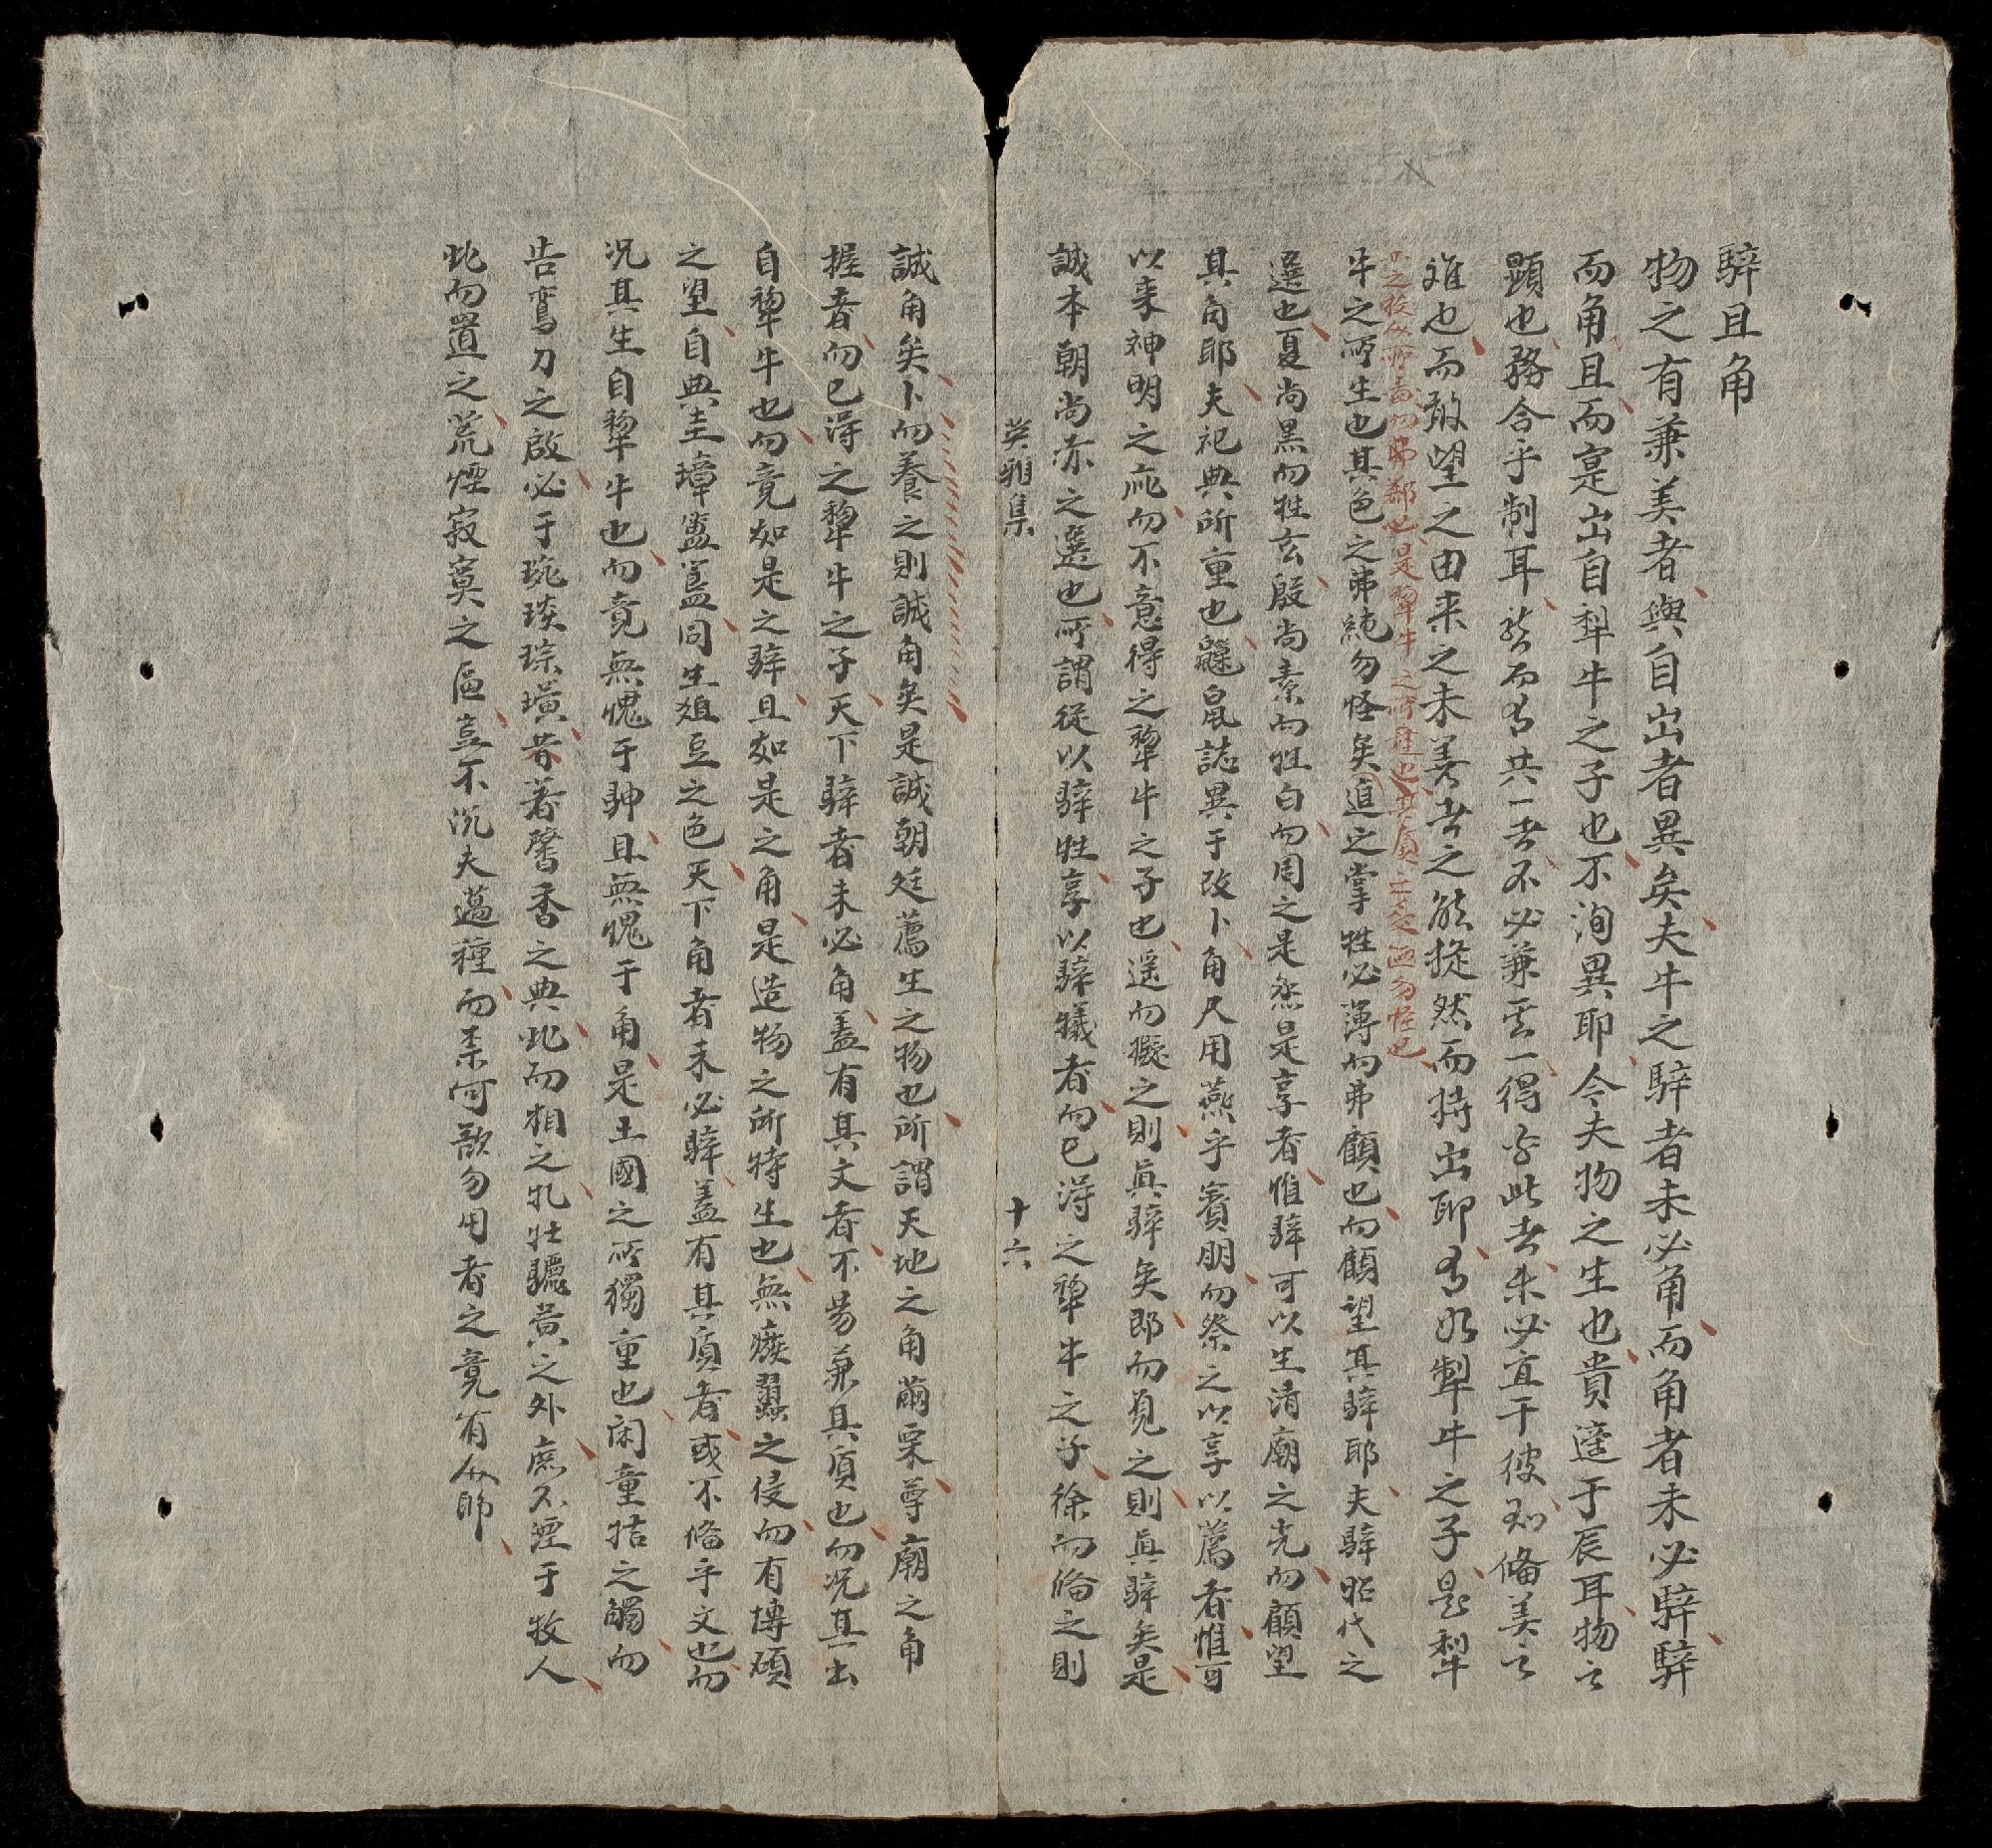 騂且角
物之有兼美者與自出者異矣夫牛之騂者未必角而角者未必騂騂
而角且而寔出自犁牛之子也不洵異耶今夫物之生也貴達于辰耳物之
顯也務合乎制耳然而有共一者不必兼云一得乎此者未必宜干彼即備美之
难也而敢望之由来之未善者之能挺然而特出耶有如犁牛之子是犁
是犂牛之所產也其質之
牛之所生也其色之弗純勿怪矣迨之掌牲必薄而弗顧也而顧望其騂耶夫騂昭代之
選也夏尚黑而牲玄殷尚素而牲白而周之是烝是享者惟騂可以生清廟之光而顧望
其角耶夫祀典所重也鼷鼠誌異于改卜角尺用燕乎賓朋而祭之以享以薦者惟可
以来神明之庇而不意得之犂牛之子也遥而擬之則真騂矣即而覓之則真騂矣是
誠本朝尚赤之選也所謂從以騂牲享以騂犧者而已淂之犂牛之子徐而偹之則
英雅集
十六
誠角矣卜而養之則誠角矣是誠朝廷薦生之物也所謂天地之角繭栗尊廟之角
握者而已淂之犂牛之子天下騂者未必角盖有其文者不易兼其質也而况其出
自犂牛也而竟如是之騂且如是之角是造物之所特生也無瘯蠡之侵而有博碩
之望自與圭璋簠簋同生俎豆之色天下角者未必騂盖有其質者或不偹乎文也而
况其生自犂牛也而竟無愧于騂且無愧于角是王國之所獨重也闲童牿之觸而
告鸾刀之啟必于琬琰琮璜昔著馨香之典此而相之牝牡驪黄之外庶不湮于牧人
此而置之荒煙寂寞之區豈不沉夫邁種而柰何歆勿用者之竟有人師